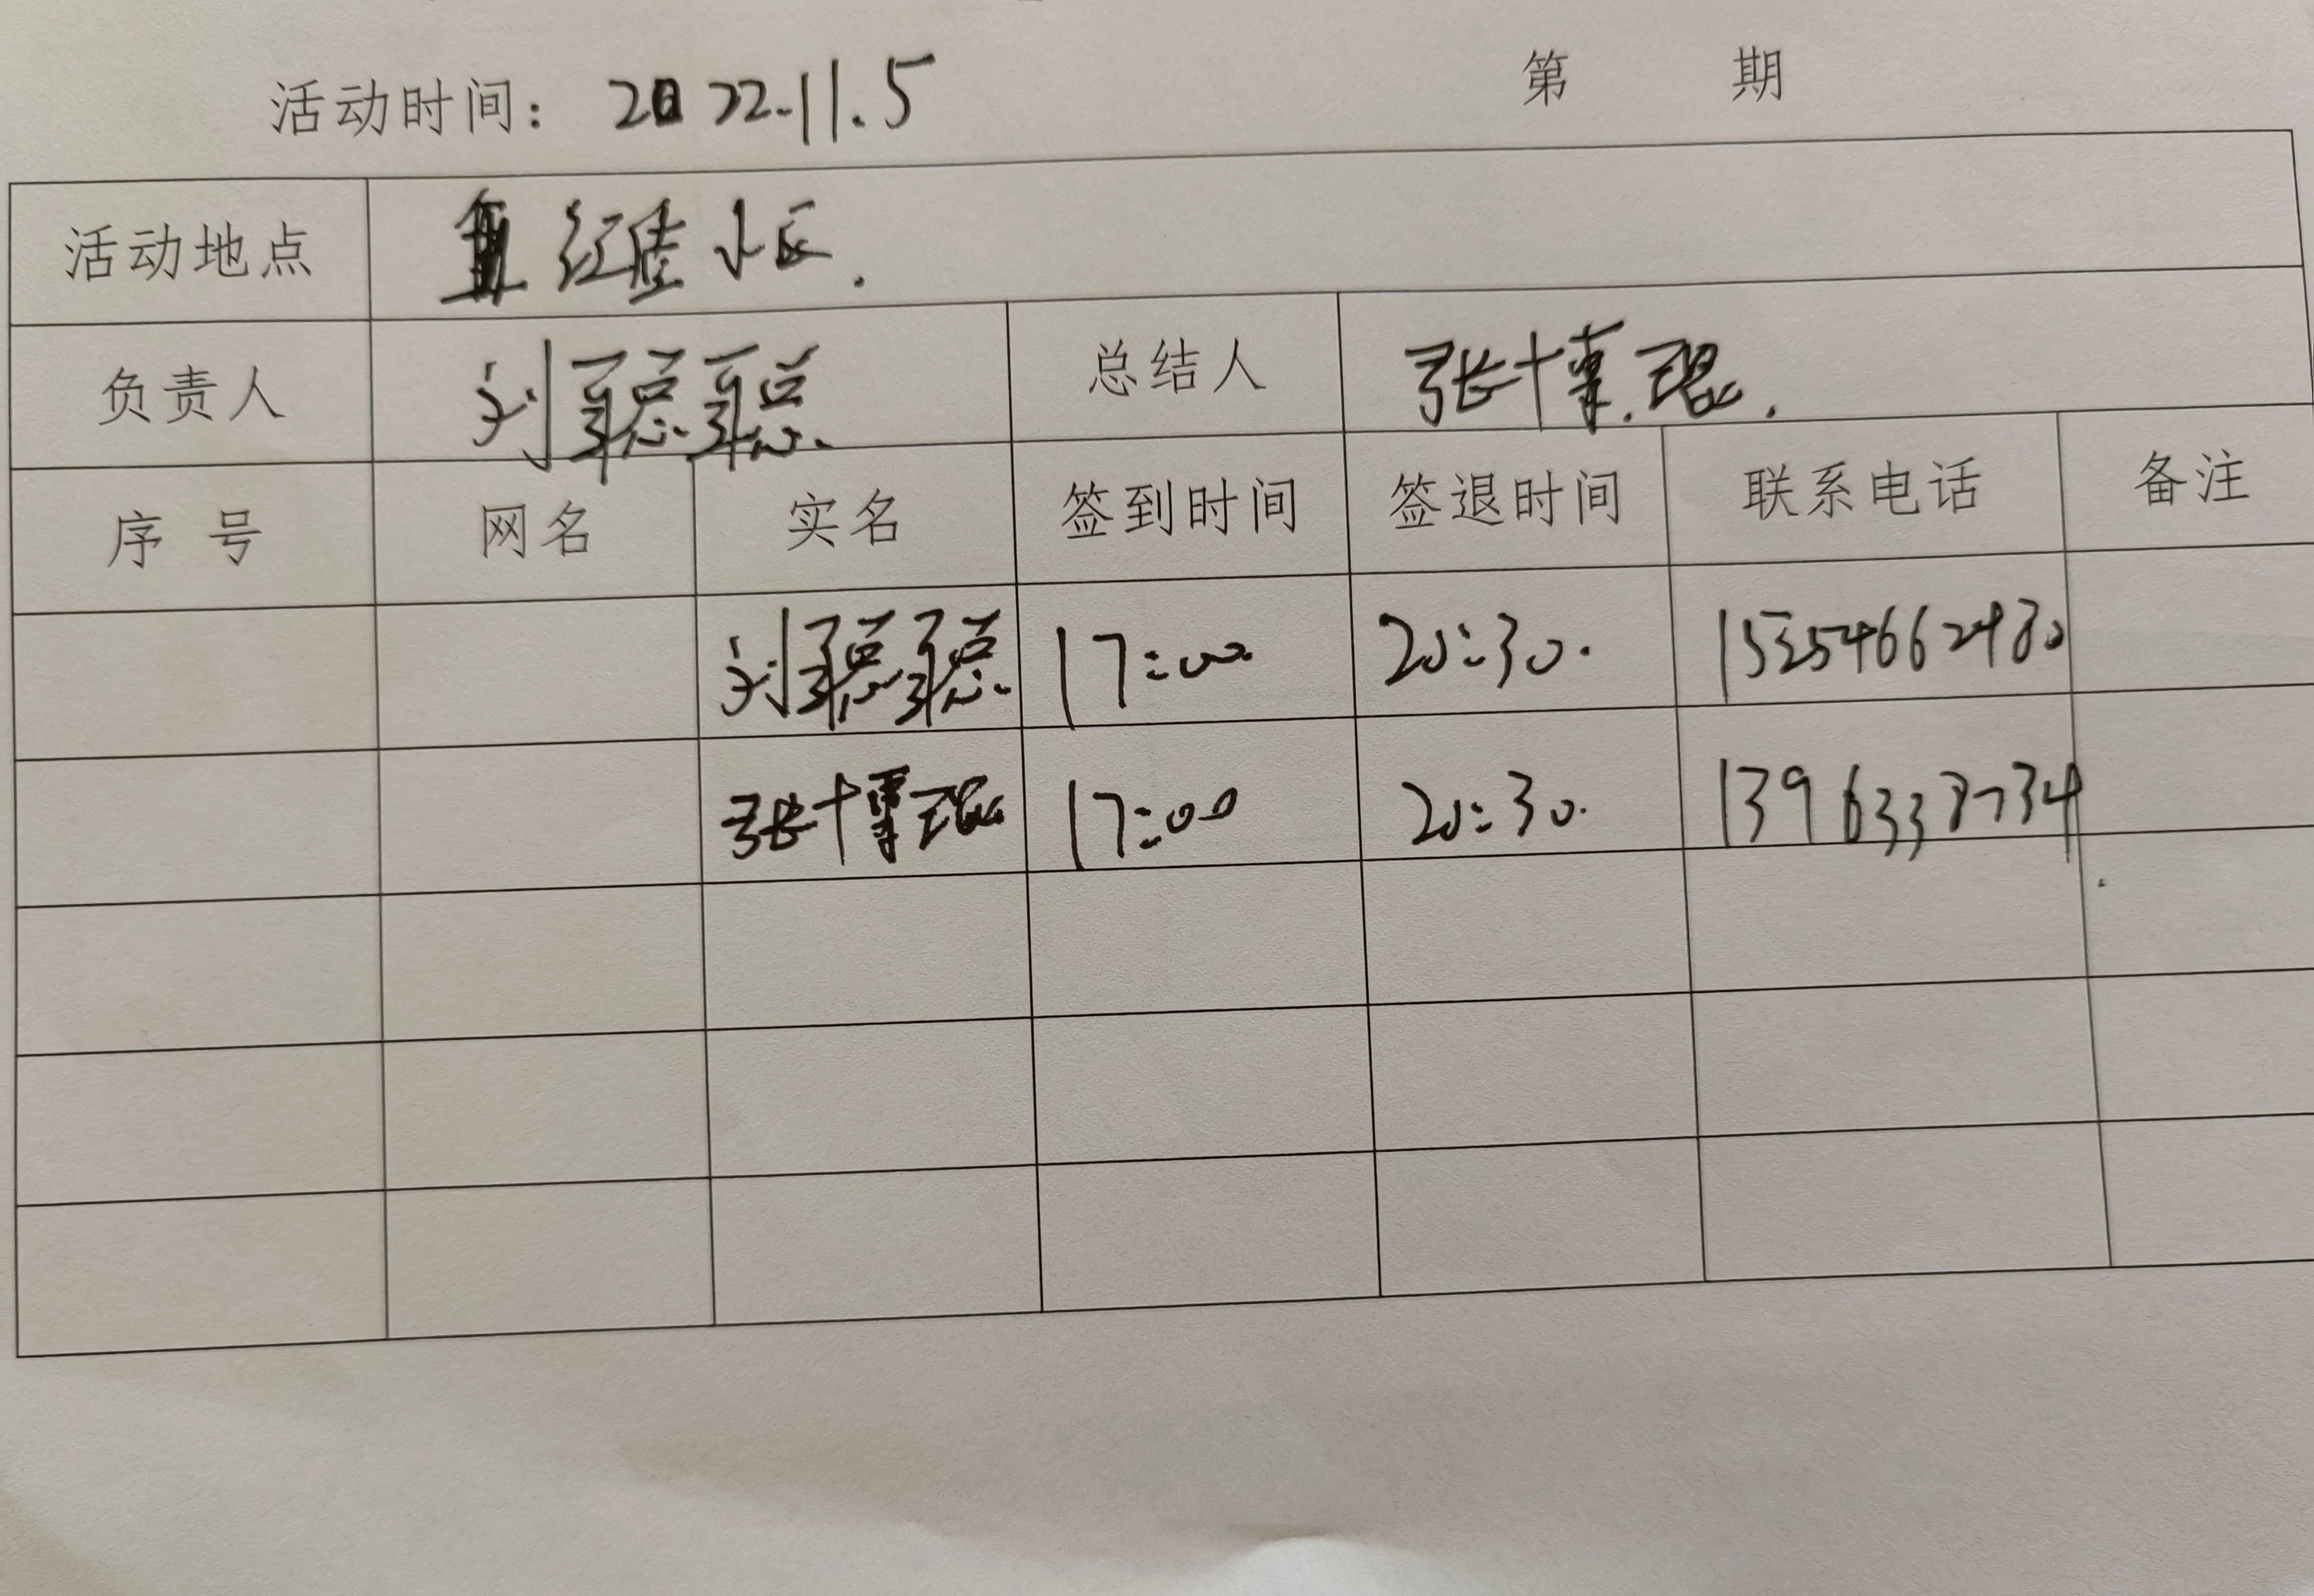 活动时间：2022.11.5 第 期
活动地点 小区.
负责人 刘聪聪. 总结人 张博琨.
序 号 网名 实名 签到时间 签退时间 联系电话 备注
刘聪聪. 17:00. 20:30. 15254662480
张博琨 17:00 20:30. 13963387734